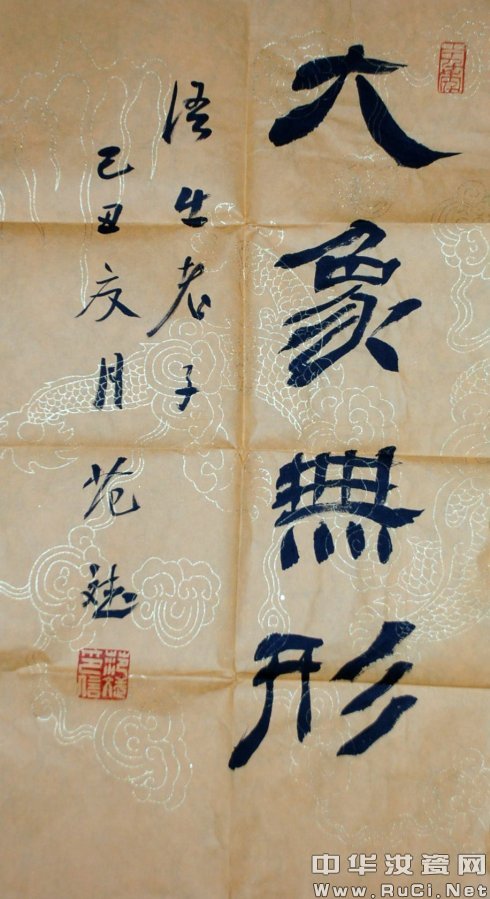 大象無形
语出老子
己丑夏月 范斌
中华汝瓷网
Www.RuCi.Net